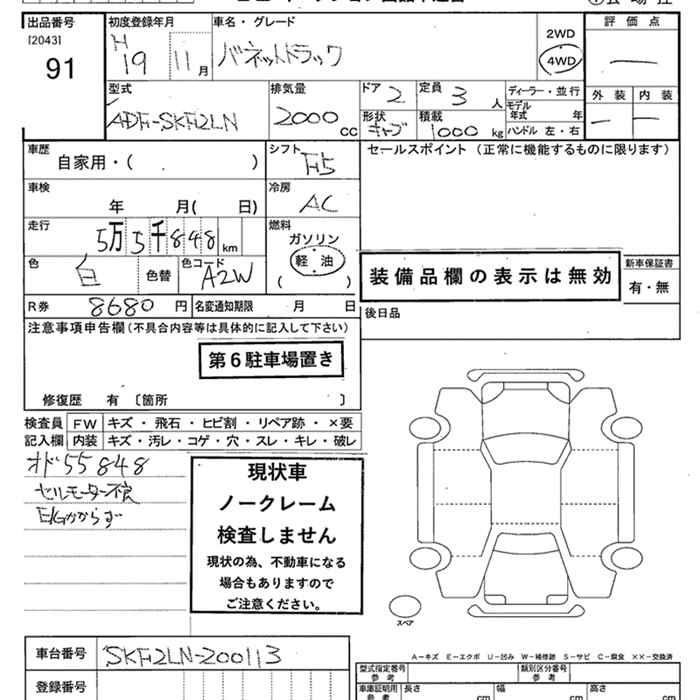 出品番号 初度登録年月 車名・グレード 評価点
[2043] H 2WD
91 19 11月 バネットトラック 4WD ―
型式 排気量 ドア 定員 ディーラー・並行 外装 内装
ADF-SKF2LN 2000cc 2 3人 モデル年式 年 ― ―
形状 積載
キャブ 1000kg ハンドル 左・右
車歴 シフト セールスポイント(正常に機能するものに限ります)
自家用・( ) F5
車検 冷房
年 月( 日) AC
走行 燃料
5万5千848km ガソリン
軽油
色 色替 色コード ( )
白 A2W
装備品欄の表示は無効 新車保証書
有・無
R券 8680円 名変通知期限 月 日 後日品
注意事項申告欄(不具合内容等は具体的に記入して下さい)
第6駐車場置き
修復歴 有 〔箇所 〕
検査員 FW キズ・飛石・ヒビ割・リペア跡・×要
記入欄 内装 キズ・汚レ・コゲ・穴・スレ・キレ・破レ
オド55848
セルモーター不良
E/Gかからず
現状車
ノークレーム
検査しません
現状の為、不動車になる
場合もありますので
ご注意ください。
スペア
A-キズ E-エクボ U-凹み W-補修跡 S-サビ C-腐食 ××-交換済
車台番号 SKF2LN-200113
型式指定番号 類別区分番号
参考 参考
登録番号 車庫証明用 長さ 幅 高さ
参考 cm cm cm